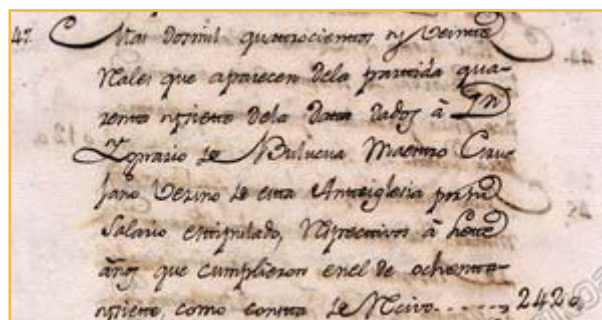 47. Mas Dosmil quatrocientos y Veinte
rrales que aparecen dela partida qua-
renta ysiette dela Datta dados à Dn
de Bulucua Maestro Ciru
jano Vezino de esta Anteiglesia por su
Salario estipulado, respectivos à
años que cumplieron enel de ochenta-
ysiette, como consta de recivo.......2420,